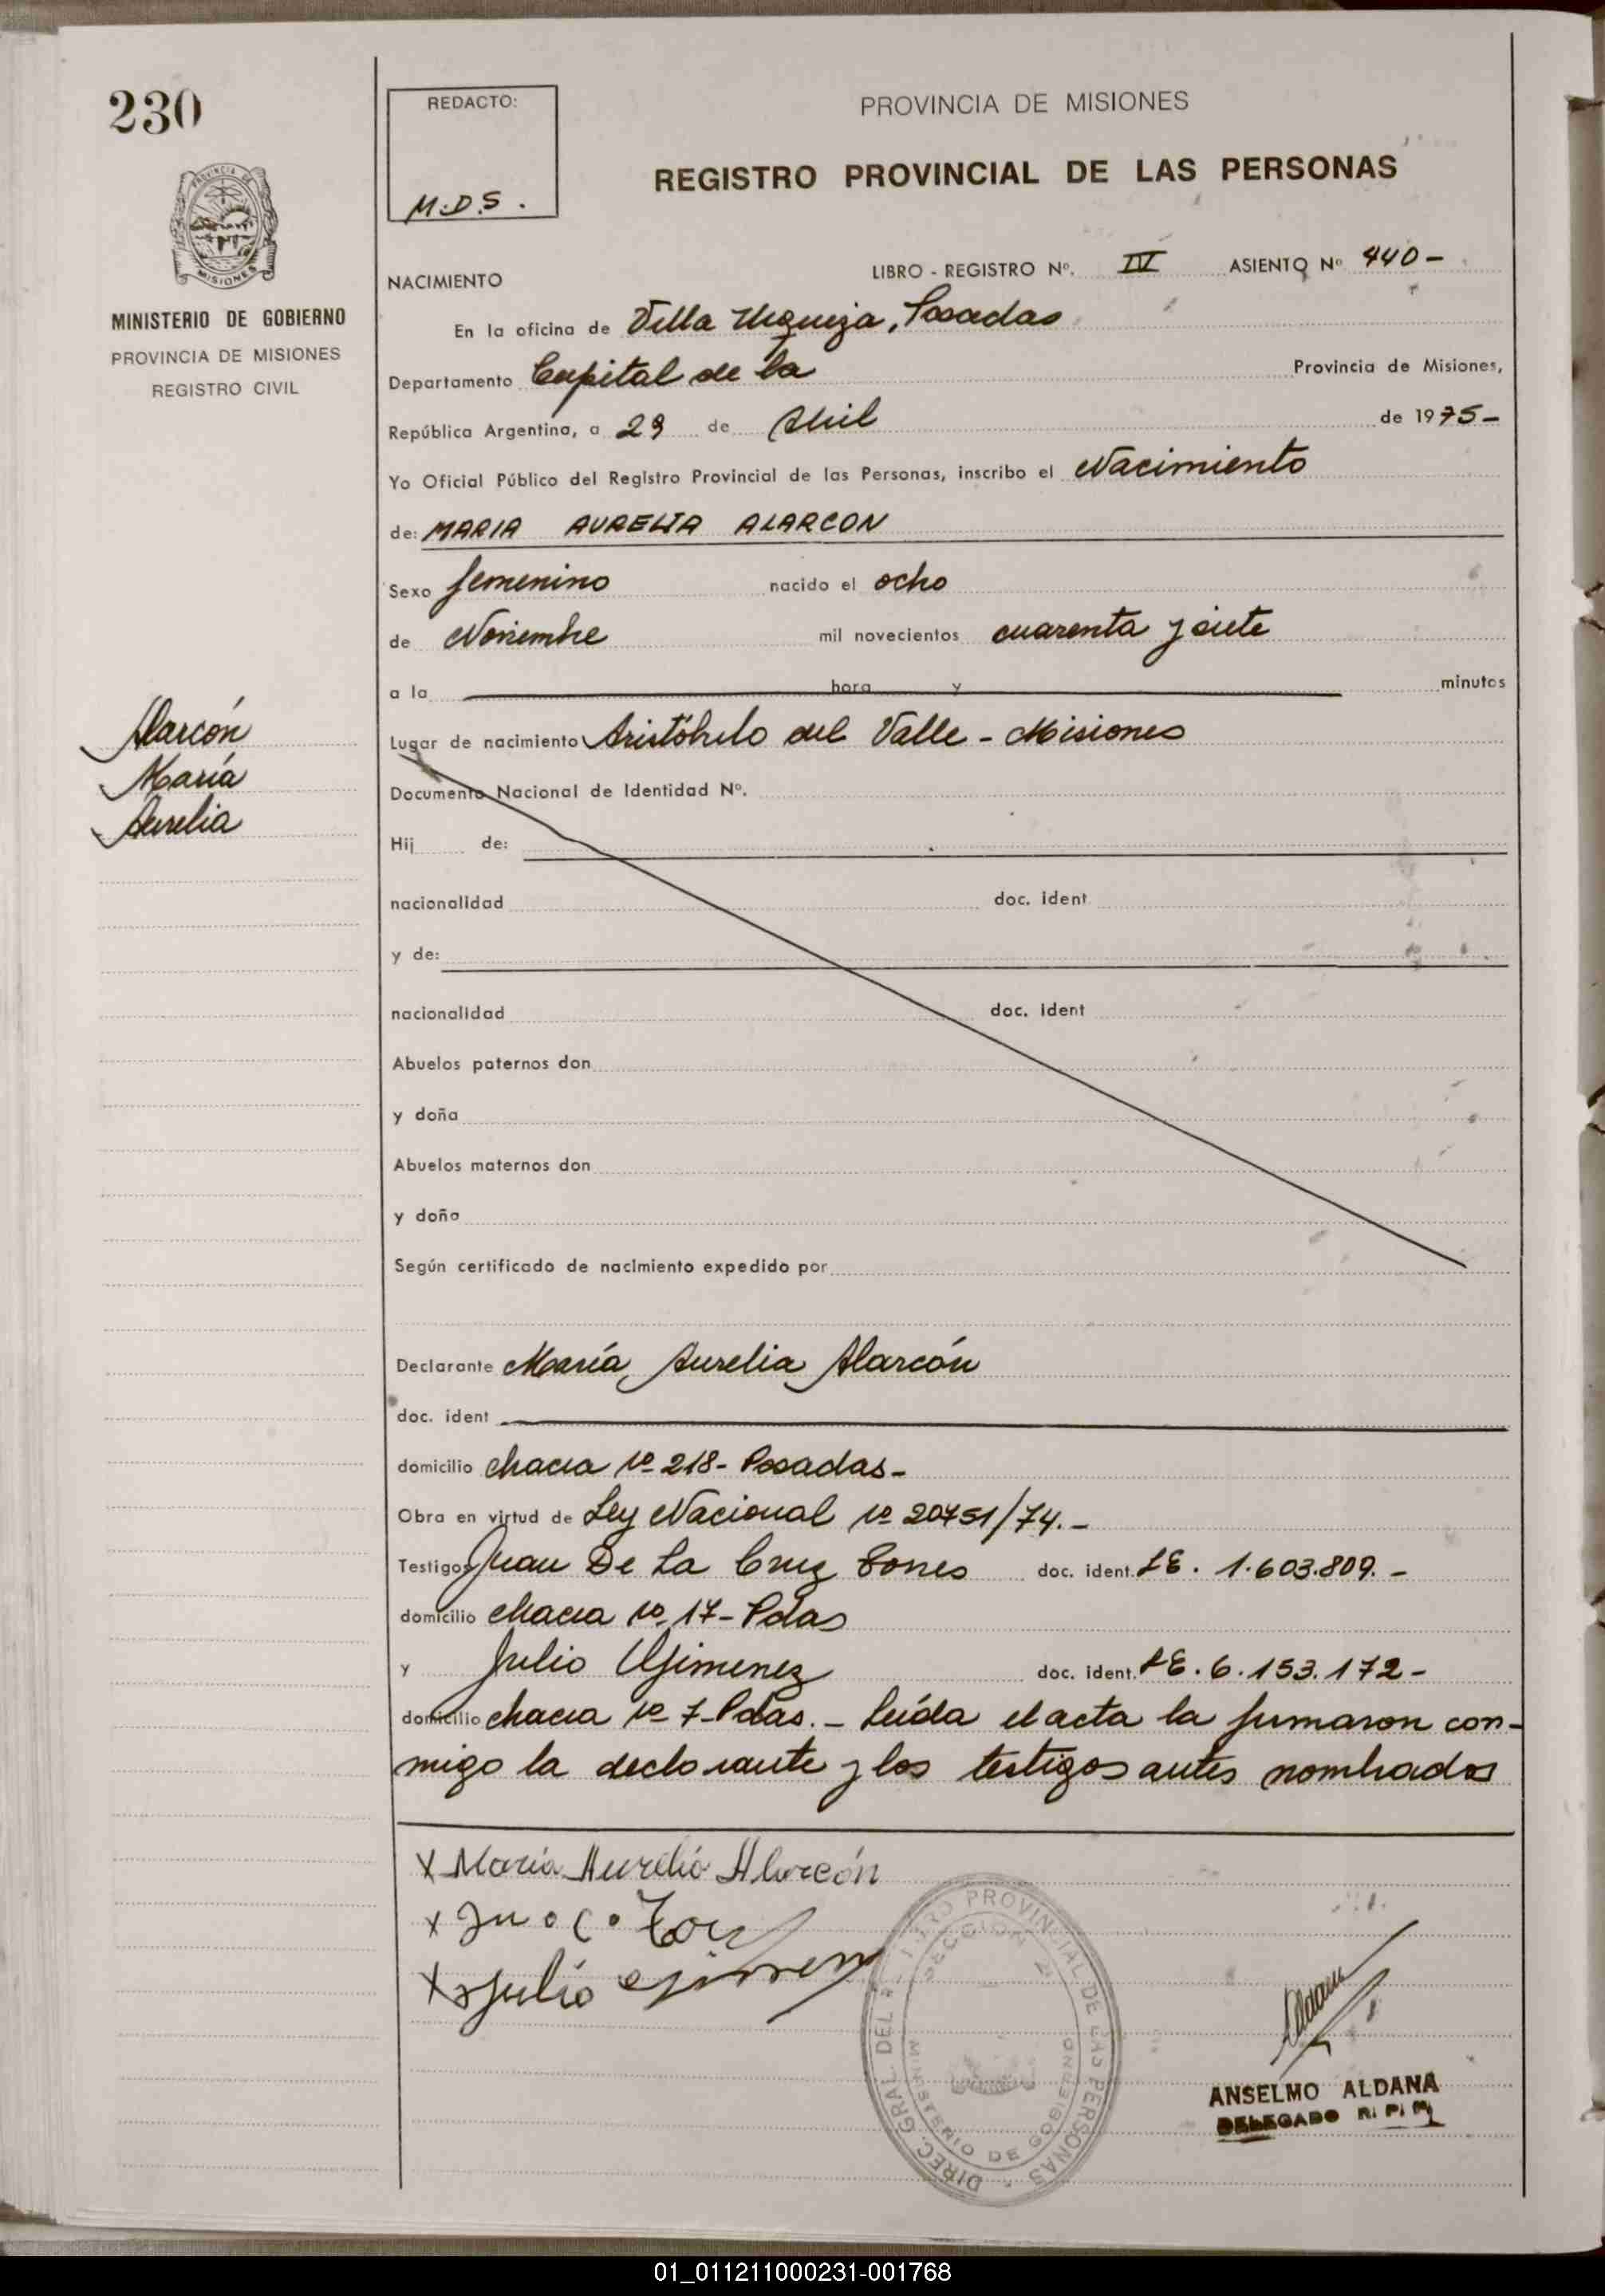 230
REDACTO:
M.D.S.
PROVINCIA DE MISIONES
REGISTRO PROVINCIAL DE LAS PERSONAS
PROVINCIA DE
MISIONES
MINISTERIO DE GOBIERNO
PROVINCIA DE MISIONES
REGISTRO CIVIL
NACIMIENTO
LIBRO - REGISTRO Nº. IV ASIENTO Nº 440-
En la oficina de Villa Urquiza, Posadas
Departamento Capital de la Provincia de Misiones,
República Argentina, a 29 de Abril de 1975-
Yo Oficial Público del Registro Provincial de las Personas, inscribo el Nacimiento
de: MARIA AURELIA ALARCON
Sexo femenino nacido el ocho
de Noviembre mil novecientos cuarenta y siete
a la hora y minutos
Alarcón
María
Aurelia
Lugar de nacimiento Aristóbulo del Valle - Misiones
Documento Nacional de Identidad Nº.
Hij de:
nacionalidad doc. ident
y de:
nacionalidad doc. ident
Abuelos paternos don
y doña
Abuelos maternos don
y doña
Según certificado de nacimiento expedido por
Declarante María Aurelia Alarcón
doc. ident
domicilio chacra nº 218- Posadas-
Obra en virtud de Ley Nacional nº 20751/74.-
Testigos Juan De La Cruz doc. ident. LE. 1.603.809.-
domicilio chacra nº 17- Pdas
y Julio Gimenez doc. ident. LE. 6.153.172-
domicilio chacra nº 7- Pdas.- Leída el acta la firmaron con-
migo la declarante y los testigos antes nombrados
x María Aurelia Alarcón
x Ju o C o
x Julio Gimenez
DIREC. GRAL. DEL REGISTRO PROVINCIAL DE LAS PERSONAS
MINISTERIO DE GOBIERNO
ANSELMO ALDANA
DELEGADO R. P. P.
01_011211000231-001768